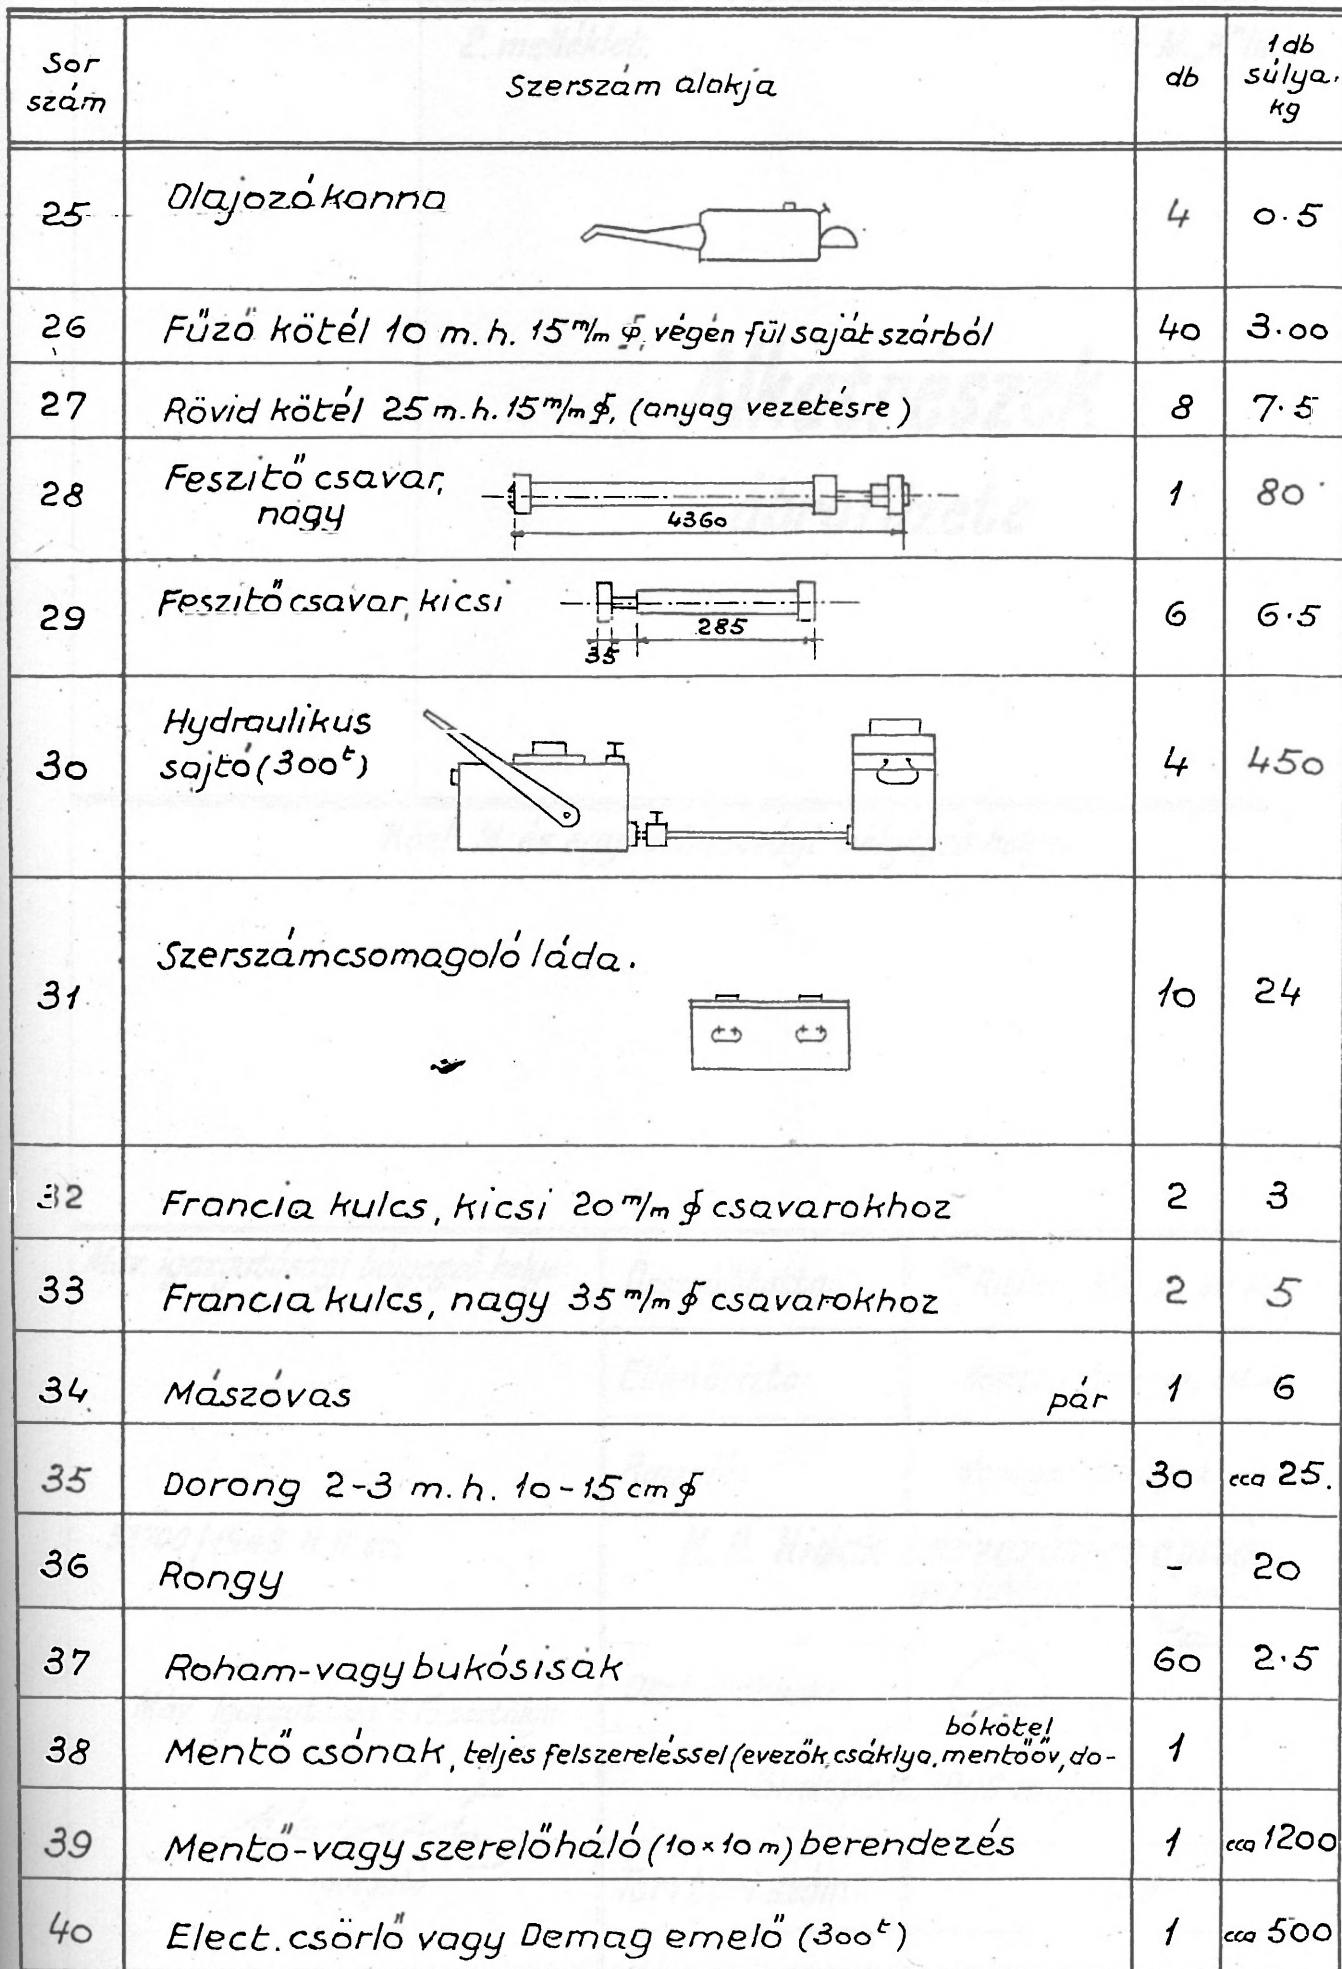 Sor
szám
Szerszám alakja
db
1 db
súlya.
kg
25 Olajozó kanna 4 0.5
26 Fűző kötél 10 m. h. 15 m/m ∮, végén fül saját szárból 40 3.00
27 Rövid kötél 25 m. h. 15 m/m ∮, (anyag vezetésre) 8 7.5
28 Feszitő csavar,
nagy 4360 1 80
29 Feszitő csavar, kicsi 6 6.5
285
35
30 Hydraulikus
sajtó (300ᵗ) 4 450
31. Szerszámcsomagoló láda. 10 24
32 Francia kulcs, kicsi 20 m/m ∮ csavarokhoz 2 3
33 Francia kulcs, nagy 35 m/m ∮ csavarokhoz 2 5
34 Mászóvas pár 1 6
35 Dorong 2-3 m. h. 10-15 cm ∮ 30 cca 25.
36 Rongy - 20
37 Roham- vagy bukósisak 60 2.5
bókötel
38 Mentő csónak, teljes felszereléssel (evezők, csáklya, mentőöv, do- 1
39 Mentő- vagy szerelőháló (10×10 m) berendezés 1 cca 1200
40 Elect. csörlő vagy Demag emelő (300ᵗ) 1 cca 500